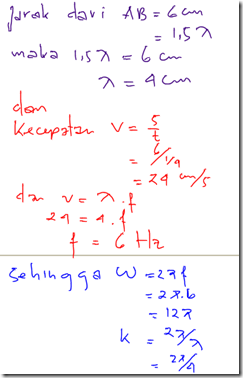 Jarak dari AB = 6 cm
= 1,5 λ
maka 1,5 λ = 6 cm
λ = 4 cm
dan
Kecepatan V = s/t
= 6/1/4
= 24 cm/s
dan v = λ.f
24 = 4.f
f = 6 Hz
Sehingga ω = 2πf
= 2π.6
= 12π
k = 2π/λ
= 2π/4